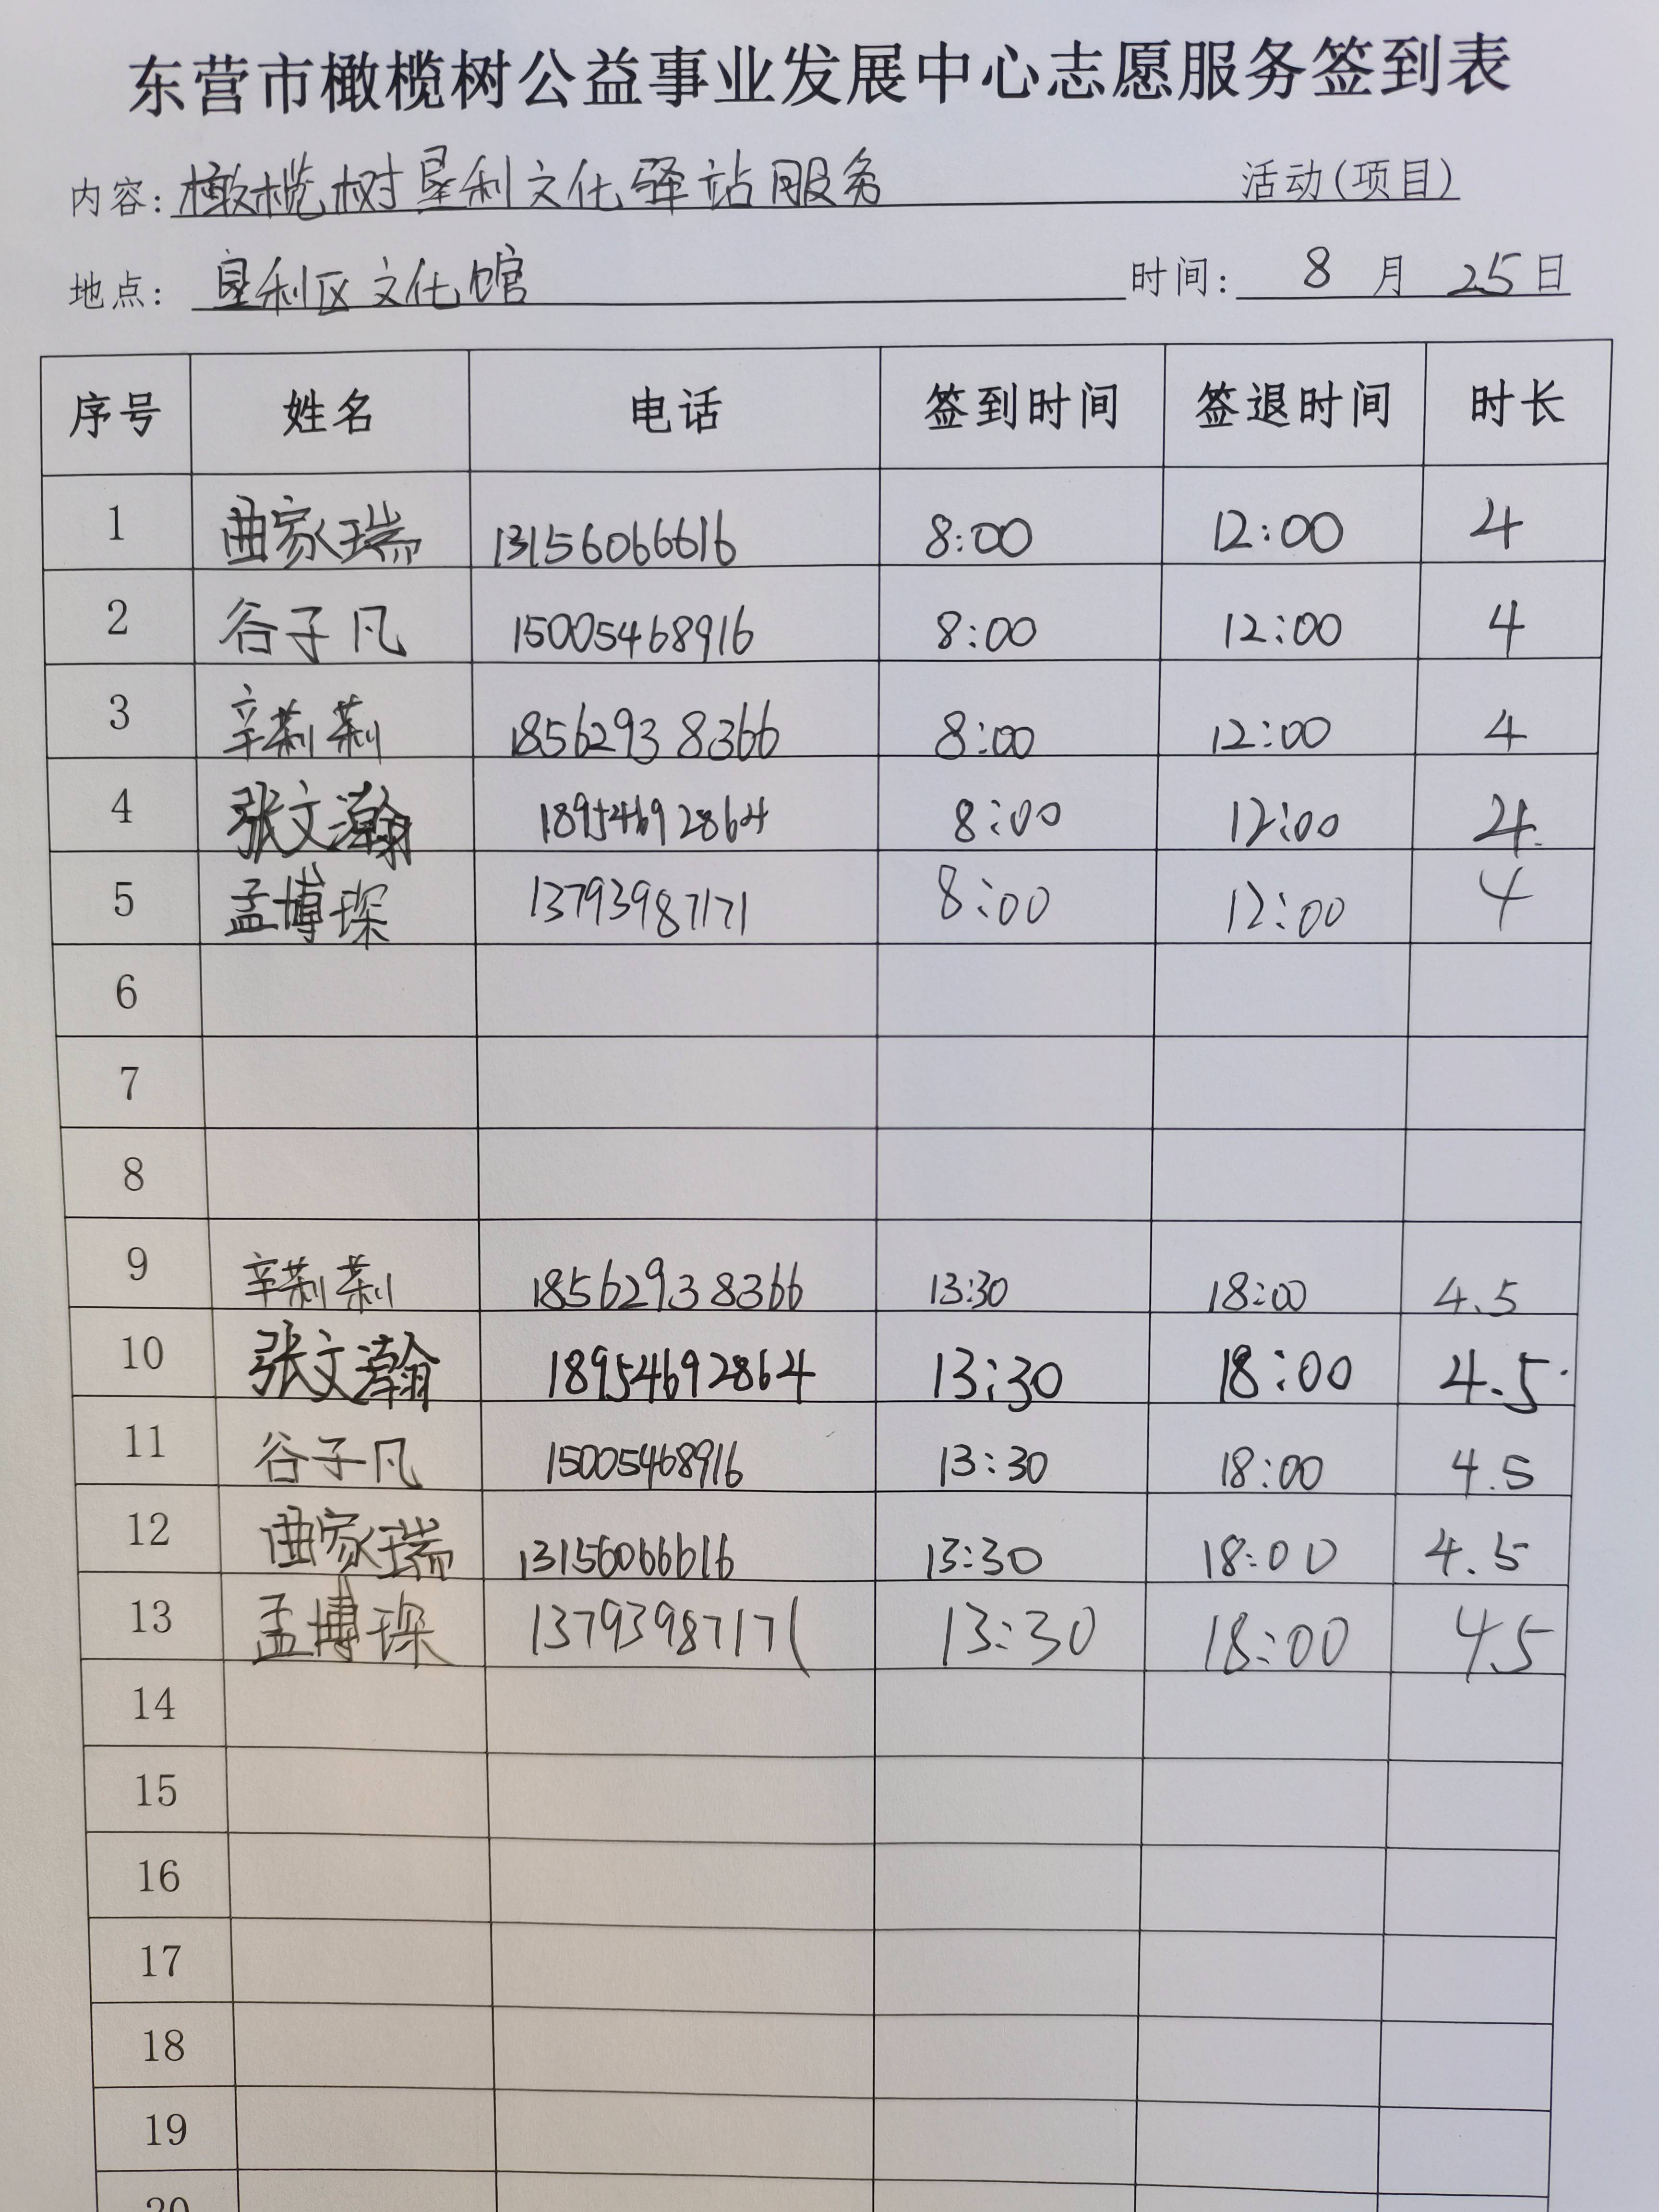 东营市橄榄树公益事业发展中心志愿服务签到表
内容: 橄榄树垦利文化驿站服务 活动(项目)
地点: 垦利区文化馆 时间: 8 月 25 日
序号 姓名 电话 签到时间 签退时间 时长
1 曲家瑞 13156066616 8:00 12:00 4
2 谷子凡 15005468916 8:00 12:00 4
3 辛莉莉 18562938366 8:00 12:00 4
4 张文瀚 18954692864 8:00 12:00 4
5 孟博琛 13793987171 8:00 12:00 4
6
7
8
9 辛莉莉 18562938366 13:30 18:00 4.5
10 张文瀚 18954692864 13:30 18:00 4.5
11 谷子凡 15005468916 13:30 18:00 4.5
12 曲家瑞 13156066616 13:30 18:00 4.5
13 孟博琛 13793987171 13:30 18:00 4.5
14
15
16
17
18
19
20